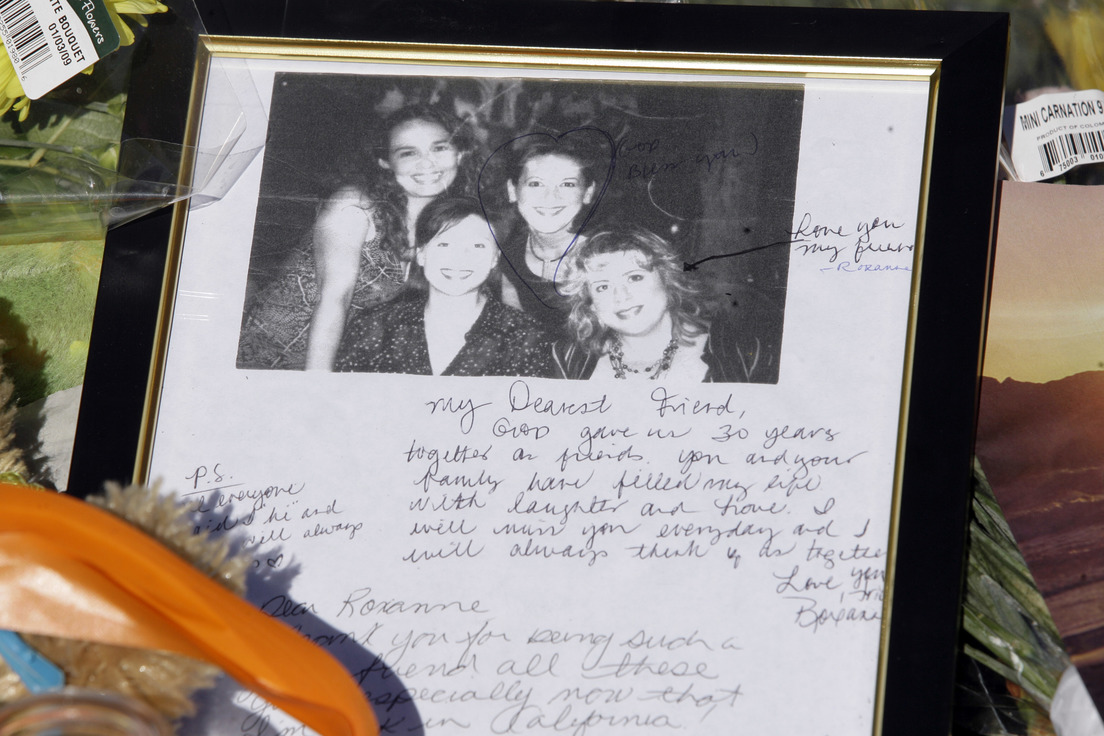 Flowers
TE BOUQUET
01/03/09
MINI CARNATION 9
PRODUCT OF COLOM
75003
God
Bless you
Love you
my friend
- Roxanne
My Dearest Friend,
GOD gave us 30 years
together as friends. You and your
family have filled my life
with laughter and love. I
will miss you everyday and I
will always think of us togethe
Love you
Roxane
P.S.
everyone
"hi" and
will always
Dear Roxanne
you for being such a
friend all these
especially now that
in California.